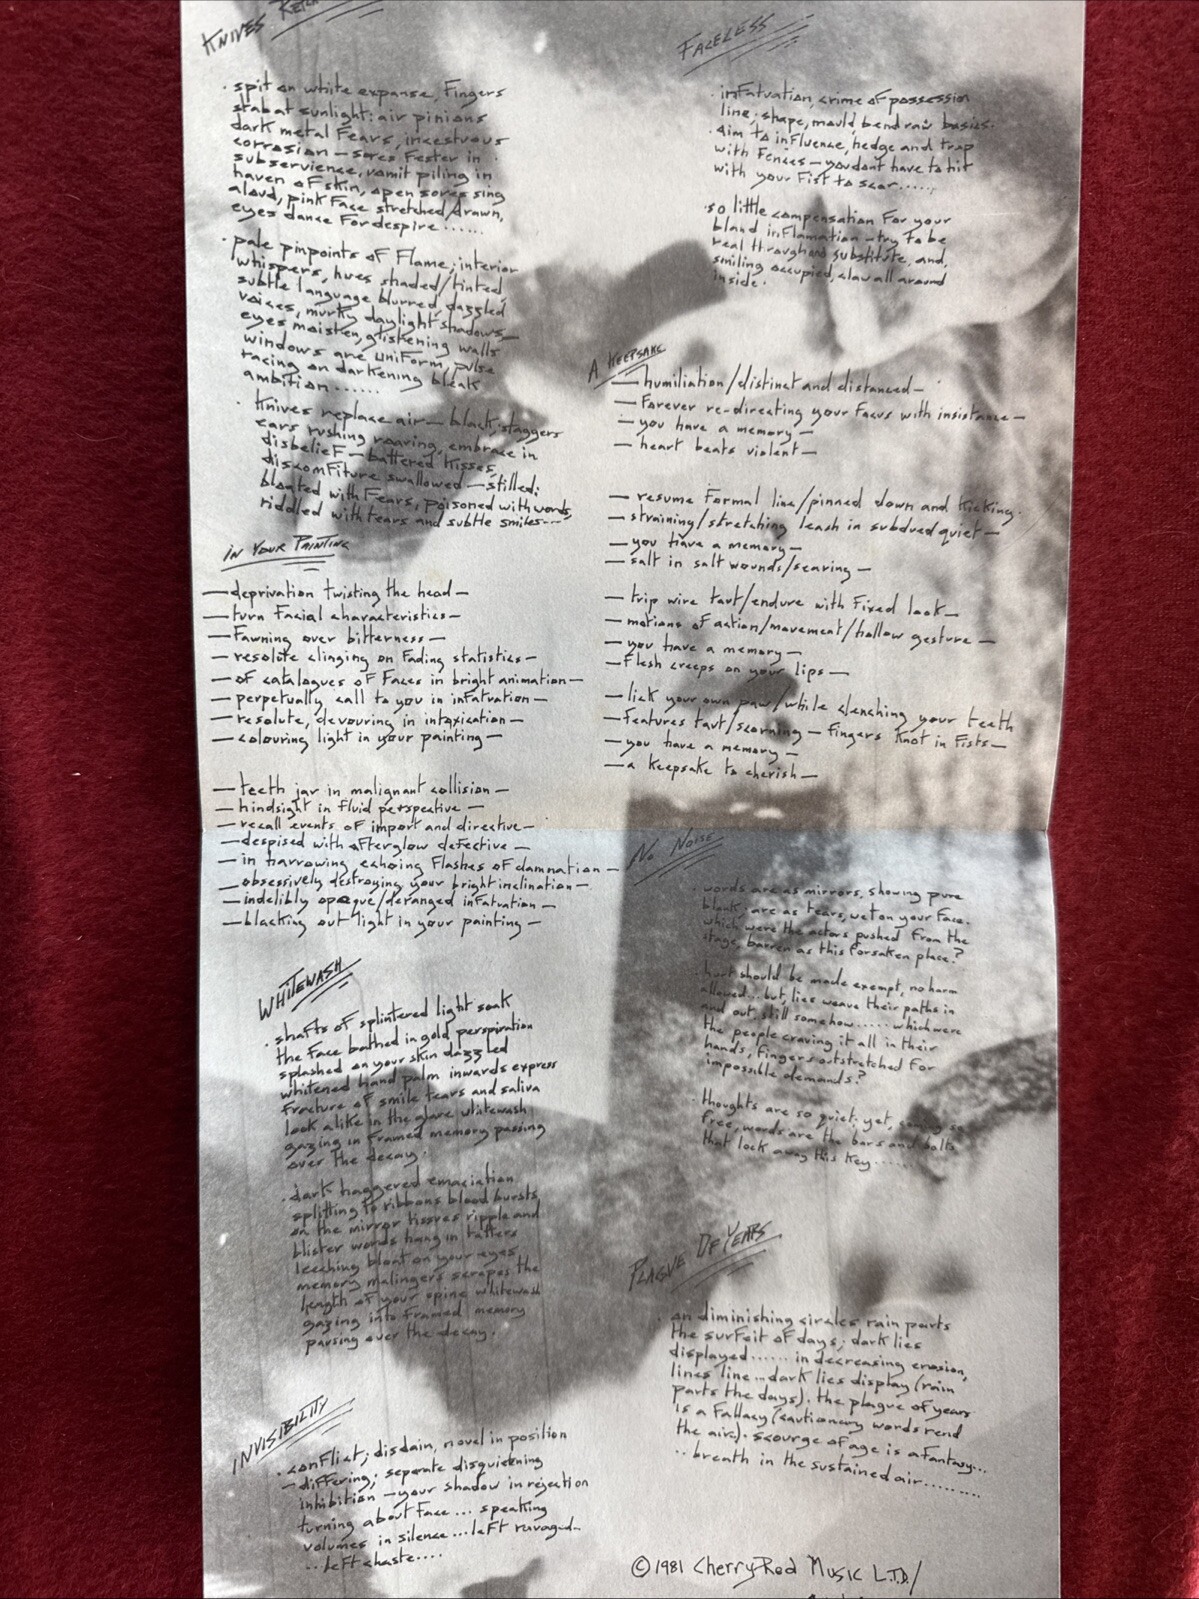 KNIVES
· spit on white expanse, Fingers
stab at sunlight: air pinions
dark metal Fears, incestuous
corrosion — sores Fester in
subservience, vomit piling in
haven of skin, open sores sing
aloud, pink Face stretched/drawn,
eyes dance For despire ......
· pale pinpoints of Flame; interior
whispers, hues shaded/tinted
subtle language blurred, dazzled
voices, murky daylight shadows—
eyes moisten, glistening walls
windows are uniForm, pulse
racing on darkening bleak
ambition ......
· Knives replace air — black, staggers
ears rushing roaring, embrace in
disbelieF — battered kisses,
discomFiture swallowed — stilled:
bloated with Fears, poisoned with words,
riddled with tears and subtle smiles---
IN YOUR PAINTING
— deprivation twisting the head —
— turn Facial characteristics —
— Fawning over bitterness —
— resolute clinging on Fading statistics —
— of catalogues of Faces in bright animation —
— perpetually call to you in inFatuation —
— resolute, devouring in intoxication —
— colouring light in your painting —
— teeth jar in malignant collision —
— hindsight in fluid perspective —
— recall events of import and directive —
— despised with afterglow defective —
— in harrowing echoing Flashes of damnation —
— obsessively destroying your bright inclination —
— indelibly opaque/deranged inFatuation —
— blacking out light in your painting —
WHITEWASH
· shafts of splintered light soak
the Face bathed in gold perspiration
splashed on your skin dazzled
whitened hand palm inwards express
Fracture of smile tears and saliva
look alike in the glare whitewash
gazing in Framed memory passing
over the decay.
· dark haggered emaciation
splitting to ribbons blood bursts
on the mirror tissues ripple and
blister words hang in tatters
leeching bloat on your eyes
memory malingers scrapes the
length of your spine whitewash
gazing into Framed memory
passing over the decay.
INVISIBILITY
· conFlict; disdain, novel in position
— differing; separate disquietening
inhibition — your shadow in rejection
turning about Face ... speaking
volumes in silence ... left ravaged...
... left chaste ....
FACELESS
· inFatuation, crime of possession
line, shape, mould bend basics.
· aim to inFluence, hedge and trap
with Fences — you dont have to hit
with your Fist to scar .....
· so little compensation For your
bland inFlamation — try to be
real through substitute, and,
smiling occupied, claw all around
inside.
A KEEPSAKE
— humiliation/distinct and distanced —
— Forever re-directing your Focus with insistance —
— you have a memory —
— heart beats violent —
— resume Formal line/pinned down and Kicking.
— straining/stretching leash in subdued quiet —
— you have a memory —
— salt in salt wounds/searing —
— trip wire taut/endure with Fixed look —
— motions of action/movement/hollow gesture —
— you have a memory —
— Flesh creeps on your lips —
— lick your own paw/while clenching your teeth
— Features taut/scorning — Fingers Knot in Fists —
— you have a memory —
— a keepsake to cherish —
NO NOISE
· words are as mirrors, showing pure
blank. are as tears, wet on your Face.
which were the actors pushed From the
stage, barren as this Forsaken place?
· hurt should be made exempt, no harm
allowed ... but, lies weave their paths in
and out, still somehow ..... which were
the people craving it all in their
hands, Fingers outstretched For
impossible demands?
· thoughts are so quiet. yet, coming so
Free, words are the bars and bolts
that lock away this Key ......
PLAGUE OF YEARS
· on diminishing circles rain parts
the surFeit of days; dark lies
displayed ...... in decreasing erosion,
lines line ... dark lies display (rain
parts the days). the plague of years
is a Fallacy (cautionary words rend
the air). scourge of age is a Fantasy...
.. breath in the sustained air .........
©1981 Cherry Red Music L.T.D./